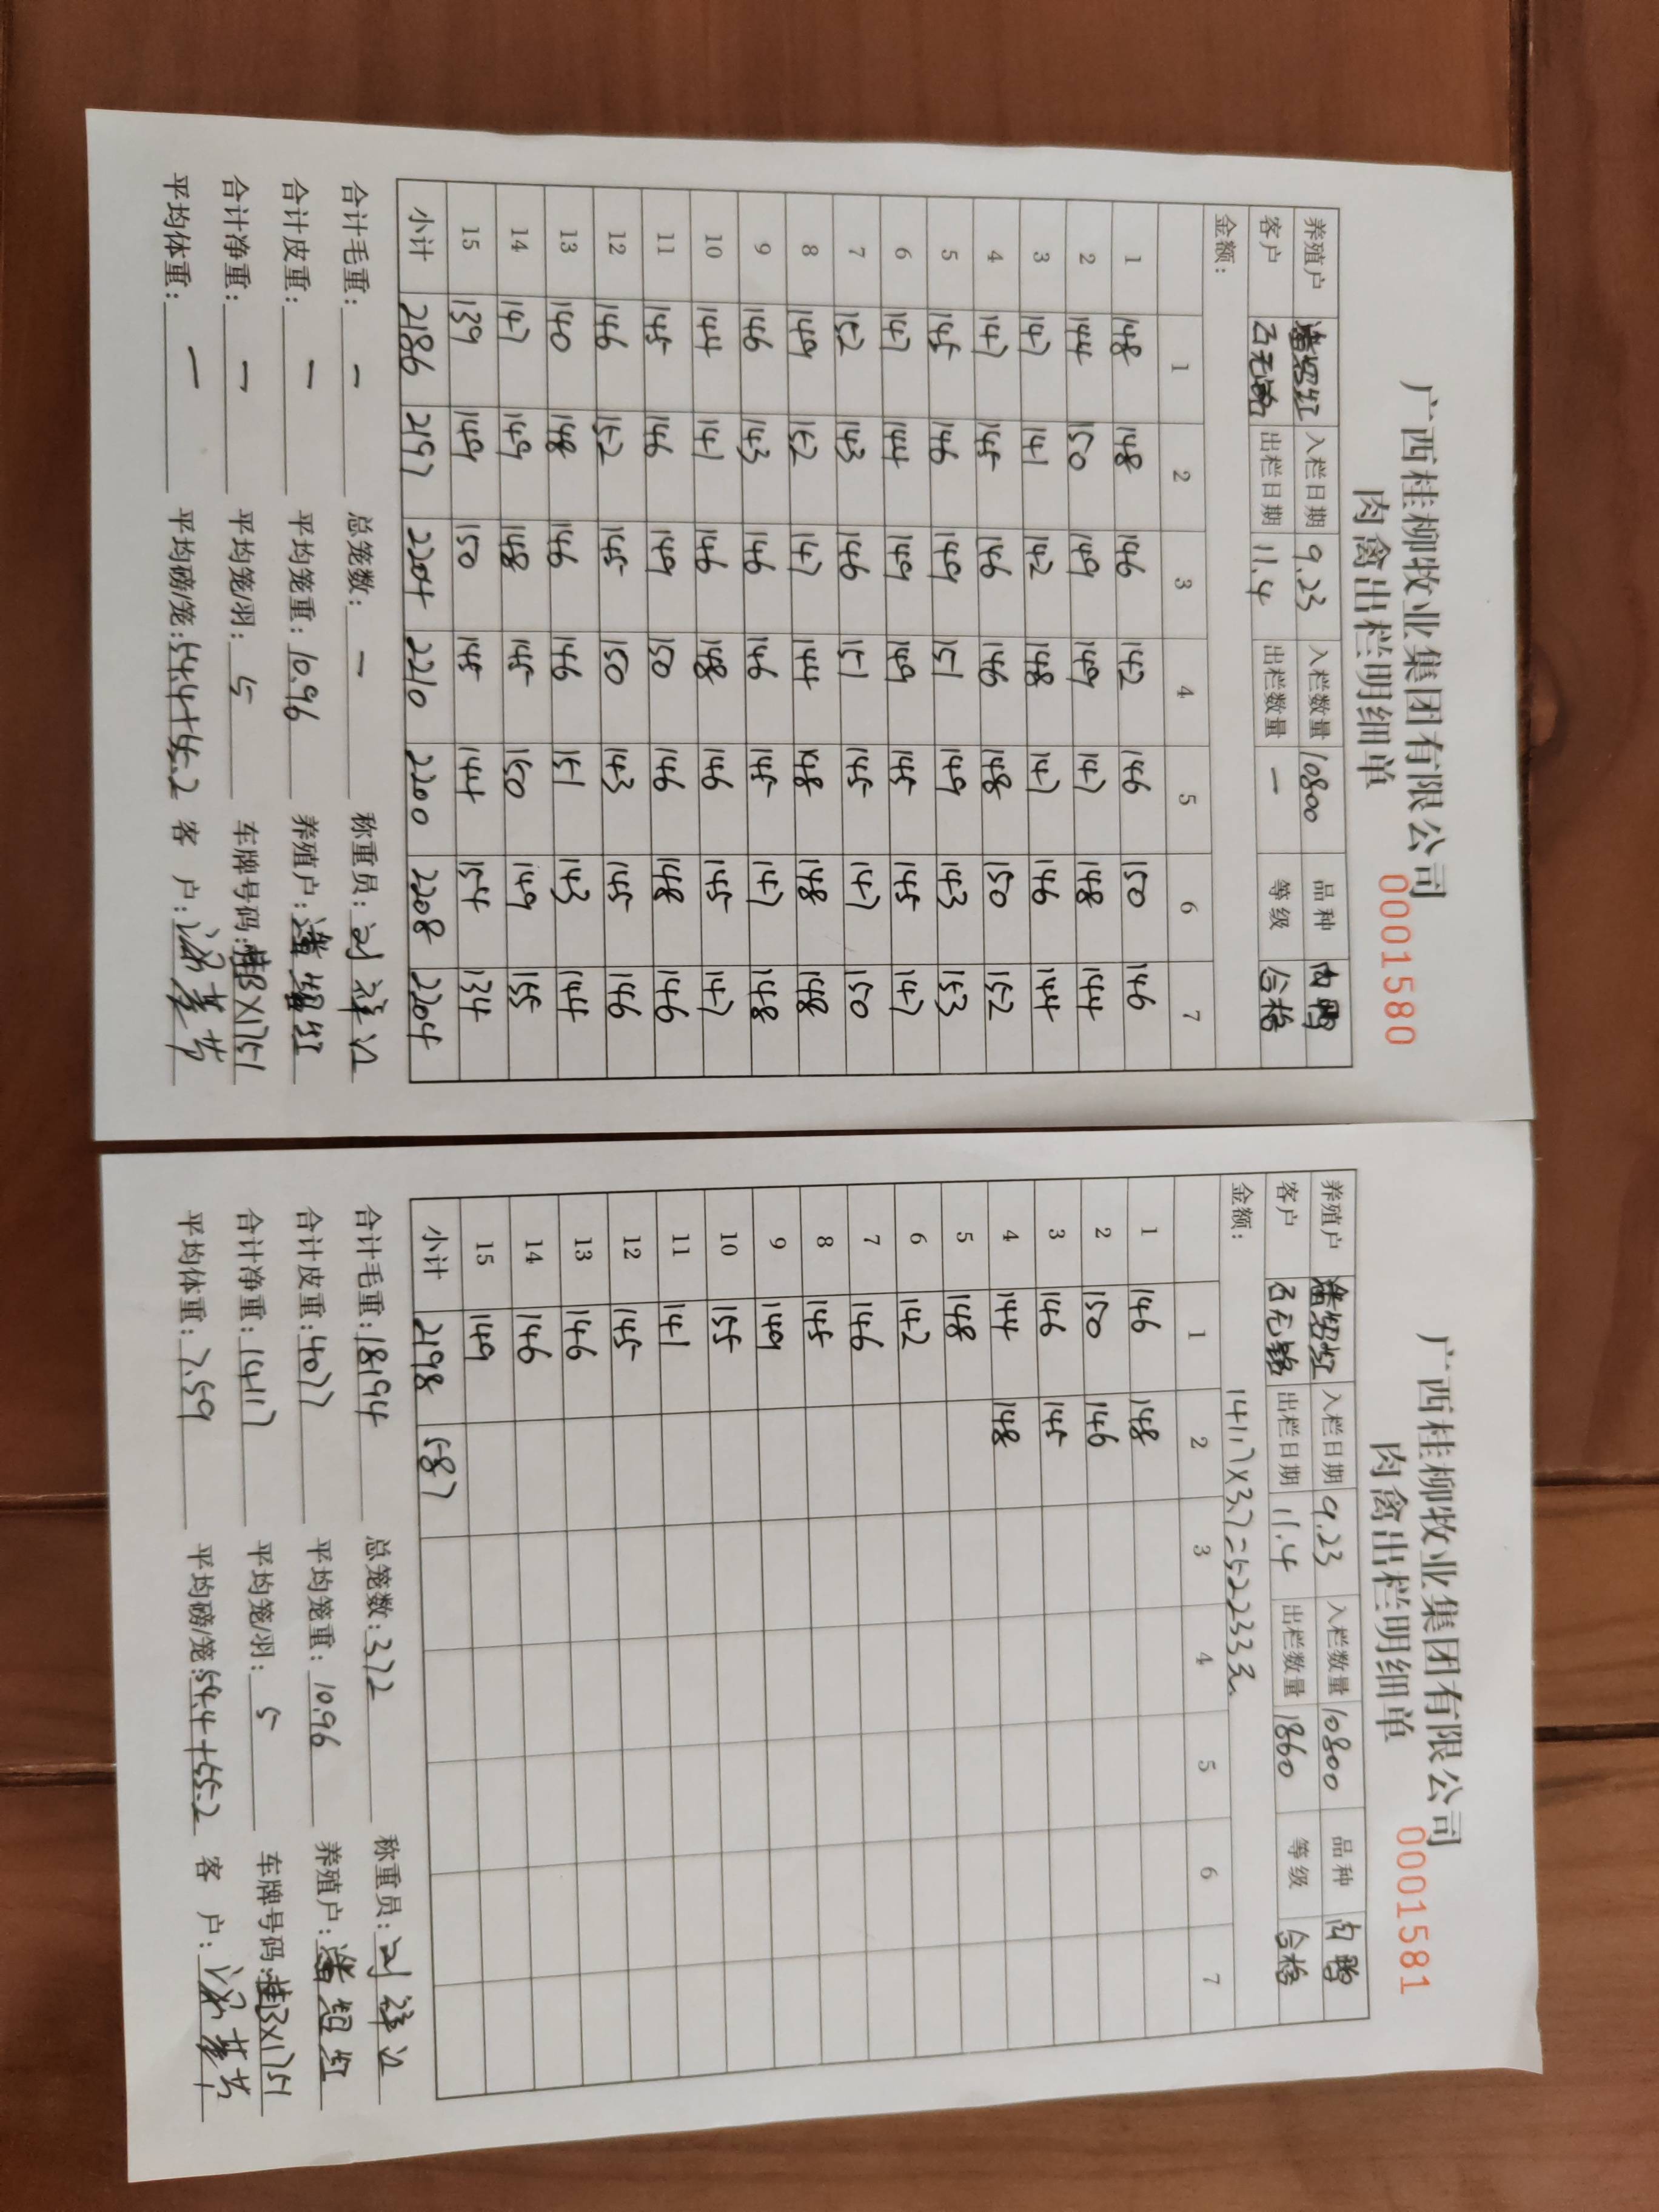 广西桂柳牧业集团有限公司
肉禽出栏明细单 0001580
养殖户 入栏日期 9.23 入栏数量 10800 品种 肉鸭
客户 出栏日期 11.4 出栏数量 一 等级 合格
金额:
1 2 3 4 5 6 7
1 148 148 146 142 146 150 146
2 144 150 149 149 147 148 144
3 147 141 142 148 147 146 144
4 147 145 146 146 148 150 152
5 145 146 149 151 149 143 153
6 147 144 149 149 145 145 147
7 152 143 146 151 145 147 150
8 149 152 147 144 148 148 148
9 146 143 146 146 145 147 148
10 144 141 146 148 146 145 147
11 145 146 149 150 146 148 146
12 146 152 145 150 143 145 146
13 140 148 146 146 151 143 144
14 147 149 148 145 150 149 155
15 139 149 150 145 144 154 134
小计 2186 2197 2204 2210 2200 2208 2204
合计毛重: 一 总笼数: 一 称重员: 刘祥江
合计皮重: 一 平均笼重: 10.96 养殖户:
合计净重: 一 平均笼/羽: 5 车牌号码: 桂BX1751
平均体重: 一 平均磅/笼: 54.4+55.2 客 户:
广西桂柳牧业集团有限公司
肉禽出栏明细单 0001581
养殖户 入栏日期 9.23 入栏数量 10800 品种 肉鸭
客户 出栏日期 11.4 出栏数量 1860 等级 合格
金额: 14117×3.7=52233元
1 2 3 4 5 6 7
1 146 148
2 150 146
3 146 145
4 144 148
5 148
6 142
7 146
8 145
9 149
10 155
11 141
12 145
13 146
14 146
15 149
小计 2198 587
合计毛重: 18194 总笼数: 372 称重员: 刘祥江
合计皮重: 4077 平均笼重: 10.96 养殖户:
合计净重: 14117 平均笼/羽: 5 车牌号码: 桂BX1751
平均体重: 7.59 平均磅/笼: 54.4+55.2 客 户: